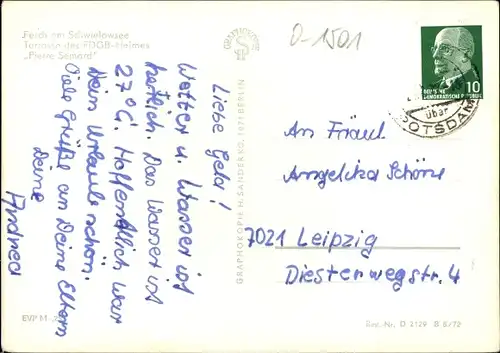 Ferch am Schwielowsee
Terrasse des FDGB-Heimes
„Pierre Semard“
Liebe Geld!
Wetter u. Wasser ist
herrlich. Das Wasser ist
27°C. Hoffentlich war
Dein Urlaub schön.
Viele Grüße an Deine Eltern
Deine
Andrea
EVP M
GRAPHOKOPIE H. SANDER KG, 1071 BERLIN
GRAPHOKOPIE
O-1501
DEUTSCHE
DEMOKRATISCHE
10
über
POTSDAM
An Fräul.
Angelika Schöne
7021 Leipzig
Diesterwegstr. 4
Best.-Nr. D 2129 B 8/72